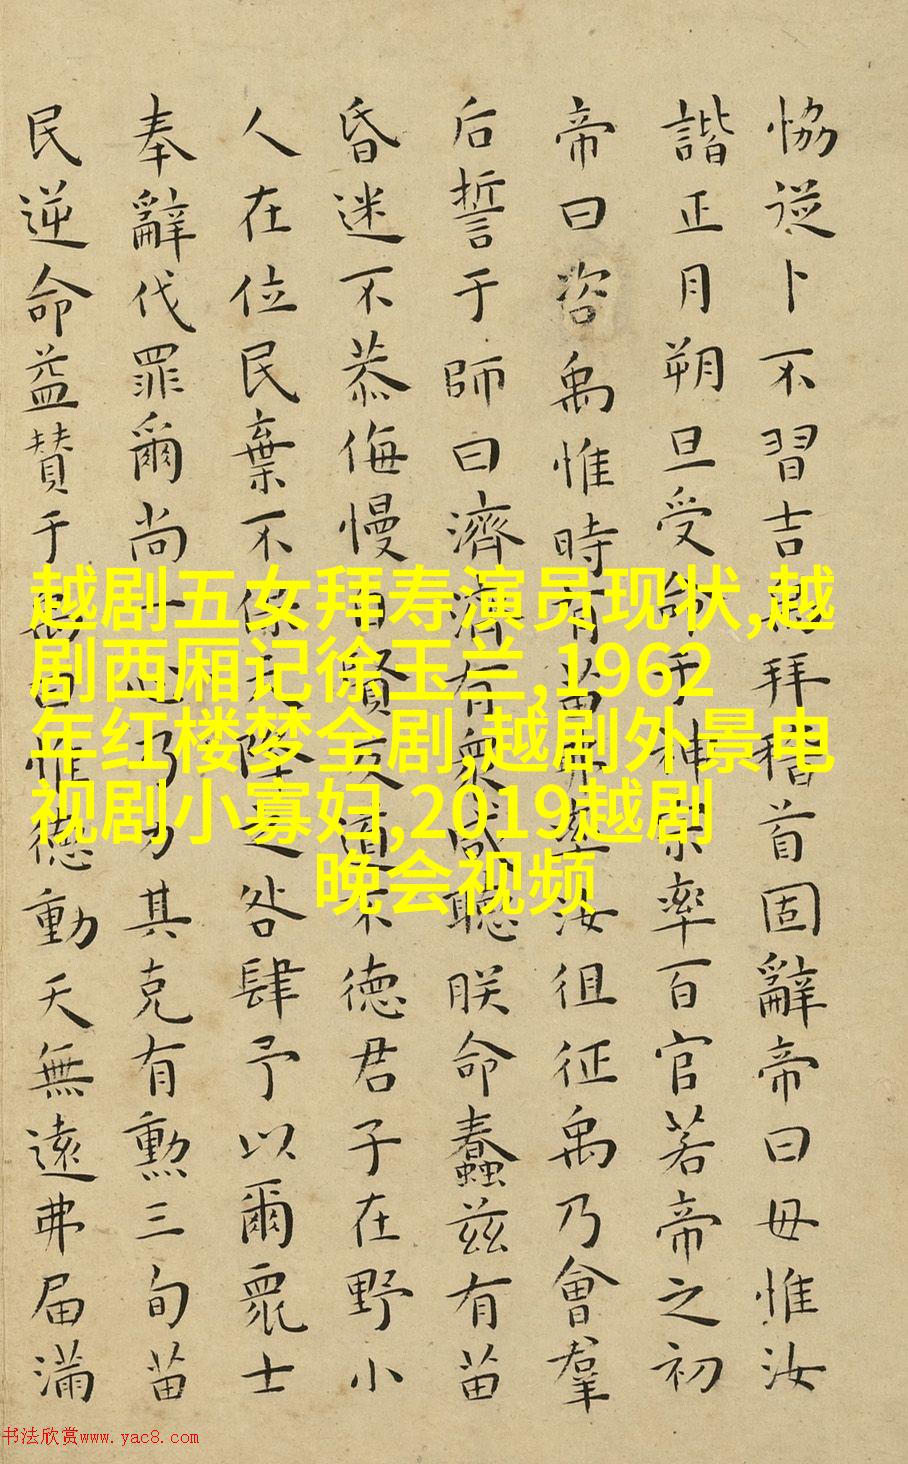 恊從卜不習吉禹拜稽首固辭帝曰毋惟汝
諧正月朔旦受命于神宗率百官若帝之初
帝曰咨禹惟時有苗弗率汝徂征禹乃會羣
后誓于師曰濟濟有衆咸聽朕命蠢兹有苗
昏迷不恭侮慢自賢反道不徳君子在野小
人在位民棄不保天降之咎肆予以爾眾士
奉辭伐罪爾尚一心乃力其克有勲三旬苗
民逆命益賛于禹曰惟徳動天無遠弗届滿
越剧五女拜寿演员现状,越
剧西厢记徐玉兰,1962
年红楼梦全剧,越剧外景电
视剧小寡妇,2019越剧
晚会视频
书法欣赏www.yac8.com